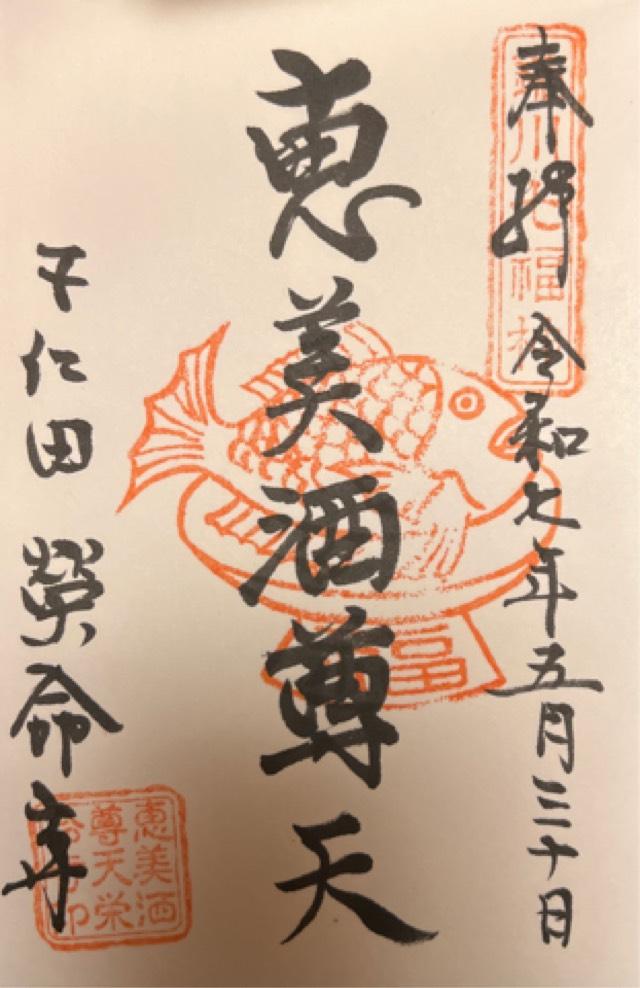 奉拝 令和七年五月三十日
恵美酒尊天
福
下仁田 榮命寺
恵美酒
尊天栄
命寺印